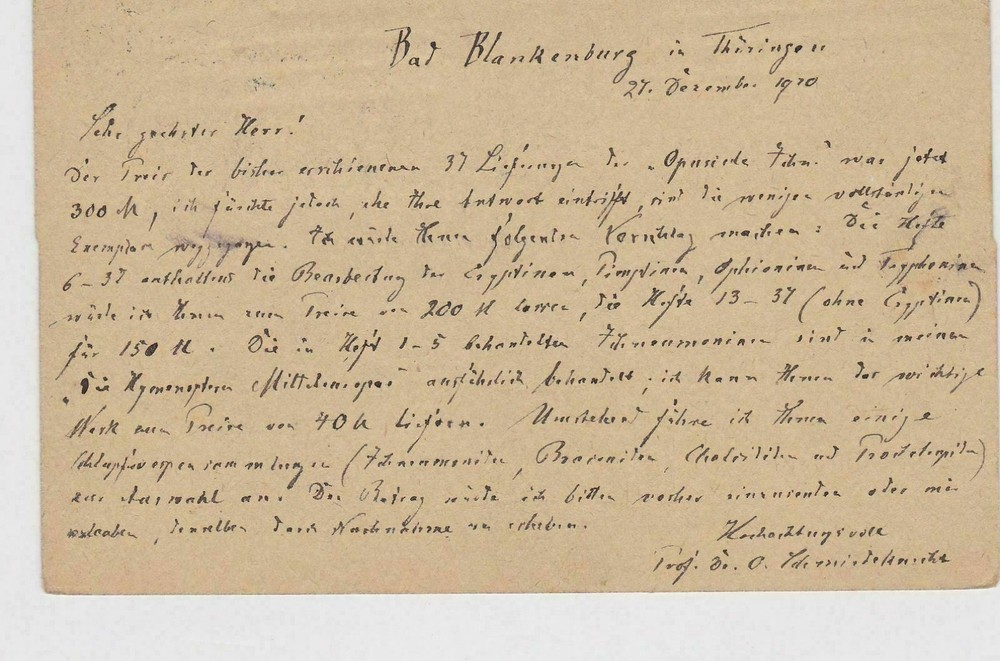 Bad Blankenburg in Thüringen
27. Dezember 1920
Sehr geehrter Herr!
Der Preis der bisher erschienenen 37 Lieferungen der „Opuscula Ichn." war jetzt
300 M, ich fürchte jedoch, ehe Ihre Antwort eintrifft, sind die wenigen vollständigen
Exemplare weggegangen. Ich würde Ihnen folgenden Vorschlag machen: Die Hefte
6–37 enthaltend die Bearbeitung der Cryptinen, Pimplinen, Ophioninen und Tryphoninen
würde ich Ihnen zum Preise von 200 M lassen, die Hefte 13–37 (ohne Cryptinen)
für 150 M. Die in Heft 1–5 behandelten Ichneumoninen sind in meinem
„Die Hymenopteren Mitteleuropas" ausführlich behandelt; ich kann Ihnen das wichtige
Werk zum Preise von 40 M liefern. Umstehend führe ich Ihnen einige
Schlupfwespensammlungen (Ichneumoniden, Braconiden, Chalcididen und Proctotrupiden)
zur Auswahl an. Den Betrag würde ich bitten vorher einzusenden oder mir
erlauben, denselben durch Nachnahme zu erheben.
Hochachtungsvoll
Prof. Dr. O. Schmiedeknecht